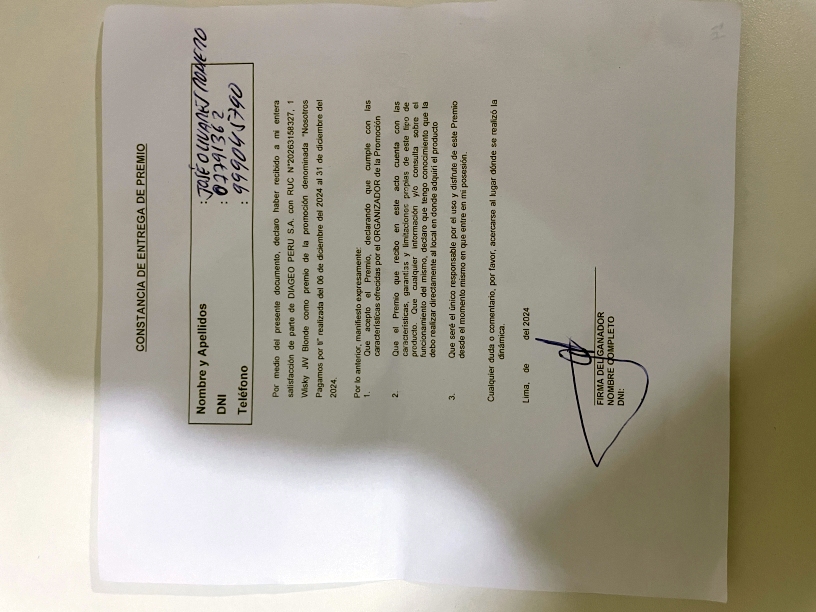 CONSTANCIA DE ENTREGA DE PREMIO
Nombre y Apellidos : JOSE OLIVARES
DNI : 07791362
Teléfono : 999045790
Por medio del presente documento, declaro haber recibido a mi entera
satisfacción de parte de DIAGEO PERU S.A. con RUC N°20263158327, 1
Wisky JW Blonde como premio de la promoción denominada "Nosotros
Pagamos por ti" realizada del 06 de diciembre del 2024 al 31 de diciembre del
2024.
Por lo anterior, manifiesto expresamente:
1. Que acepto el Premio, declarando que cumple con las
características ofrecidas por el ORGANIZADOR de la Promoción
2. Que el Premio que recibo en este acto cuenta con las
características, garantías y limitaciones propias de este tipo de
producto. Que cualquier información y/o consulta sobre el
funcionamiento del mismo, declaro que tengo conocimiento que la
debo realizar directamente al local en donde adquirí el producto
3. Que seré el único responsable por el uso y disfrute de este Premio
desde el momento mismo en que entre en mi posesión.
Cualquier duda o comentario, por favor, acercarse al lugar dónde se realizó la
dinámica.
Lima, de del 2024
FIRMA DEL GANADOR
NOMBRE COMPLETO
DNI: